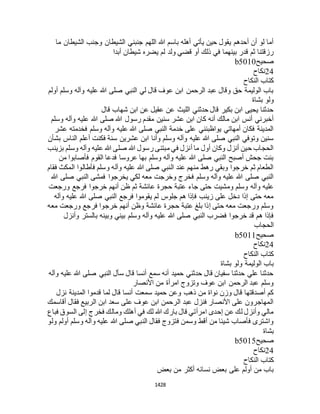 أما لو أن أحدهم يقول حين يأتي أهله باسم الله اللهم جنبني الشيطان وجنب الشيطان ما
رزقتنا ثم قدر بينهما في ذلك أو قضي ولد لم يضره شيطان أبدا
صحيح b5010
24نكاح
كتاب النكاح
باب الوليمة حق وقال عبد الرحمن ابن عوف قال لي النبي صلى الله عليه وآله وسلم أولم
ولو بشاة
حدثنا يحيى ابن بكير قال حدثني الليث عن عقيل عن ابن شهاب قال
أخبرني أنس ابن مالك أنه كان ابن عشر سنين مقدم رسول الله صلى الله عليه وآله وسلم
المدينة فكان أمهاتي يواظبنني على خدمة النبي صلى الله عليه وآله وسلم فخدمته عشر
سنين وتوفي النبي صلى الله عليه وآله وسلم وأنا ابن عشرين سنة فكنت أعلم الناس بشأن
الحجاب حين أنزل وكان أول ما أنزل في مبتنى رسول الله صلى الله عليه وآله وسلم بزينب
بنت جحش أصبح النبي صلى الله عليه وآله وسلم بها عروسا فدعا القوم فأصابوا من
الطعام ثم خرجوا وبقي رهط منهم عند النبي صلى الله عليه وآله وسلم فأطالوا المكث فقام
النبي صلى الله عليه وآله وسلم فخرج وخرجت معه لكي يخرجوا فمشى النبي صلى الله
عليه وآله وسلم ومشيت حتى جاء عتبة حجرة عائشة ثم ظن أنهم خرجوا فرجع ورجعت
معه حتى إذا دخل على زينب فإذا هم جلوس لم يقوموا فرجع النبي صلى الله عليه وآله
وسلم ورجعت معه حتى إذا بلغ عتبة حجرة عائشة وظن أنهم خرجوا فرجع ورجعت معه
فإذا هم قد خرجوا فضرب النبي صلى الله عليه وآله وسلم بيني وبينه بالستر وأنزل
الحجاب
صحيح b5011
24نكاح
كتاب النكاح
باب الوليمة ولو بشاة
حدثنا علي حدثنا سفيان قال حدثني حميد أنه سمع أنسا قال سأل النبي صلى الله عليه وآله
وسلم عبد الرحمن ابن عوف وتزوج امرأة من الأنصار
كم أصدقتها قال وزن نواة من ذهب وعن حميد سمعت أنسا قال لما قدموا المدينة نزل
المهاجرون على الأنصار فنزل عبد الرحمن ابن عوف على سعد ابن الربيع فقال أقاسمك
مالي وأنزل لك عن إحدى امرأتي قال بارك الله لك في أهلك ومالك فخرج إلى السوق فباع
واشترى فأصاب شيئا من أقط وسمن فتزوج فقال النبي صلى الله عليه وآله وسلم أولم ولو
بشاة
صحيح b5015
24نكاح
كتاب النكاح
باب من أولم على بعض نسائه أكثر من بعض
1428